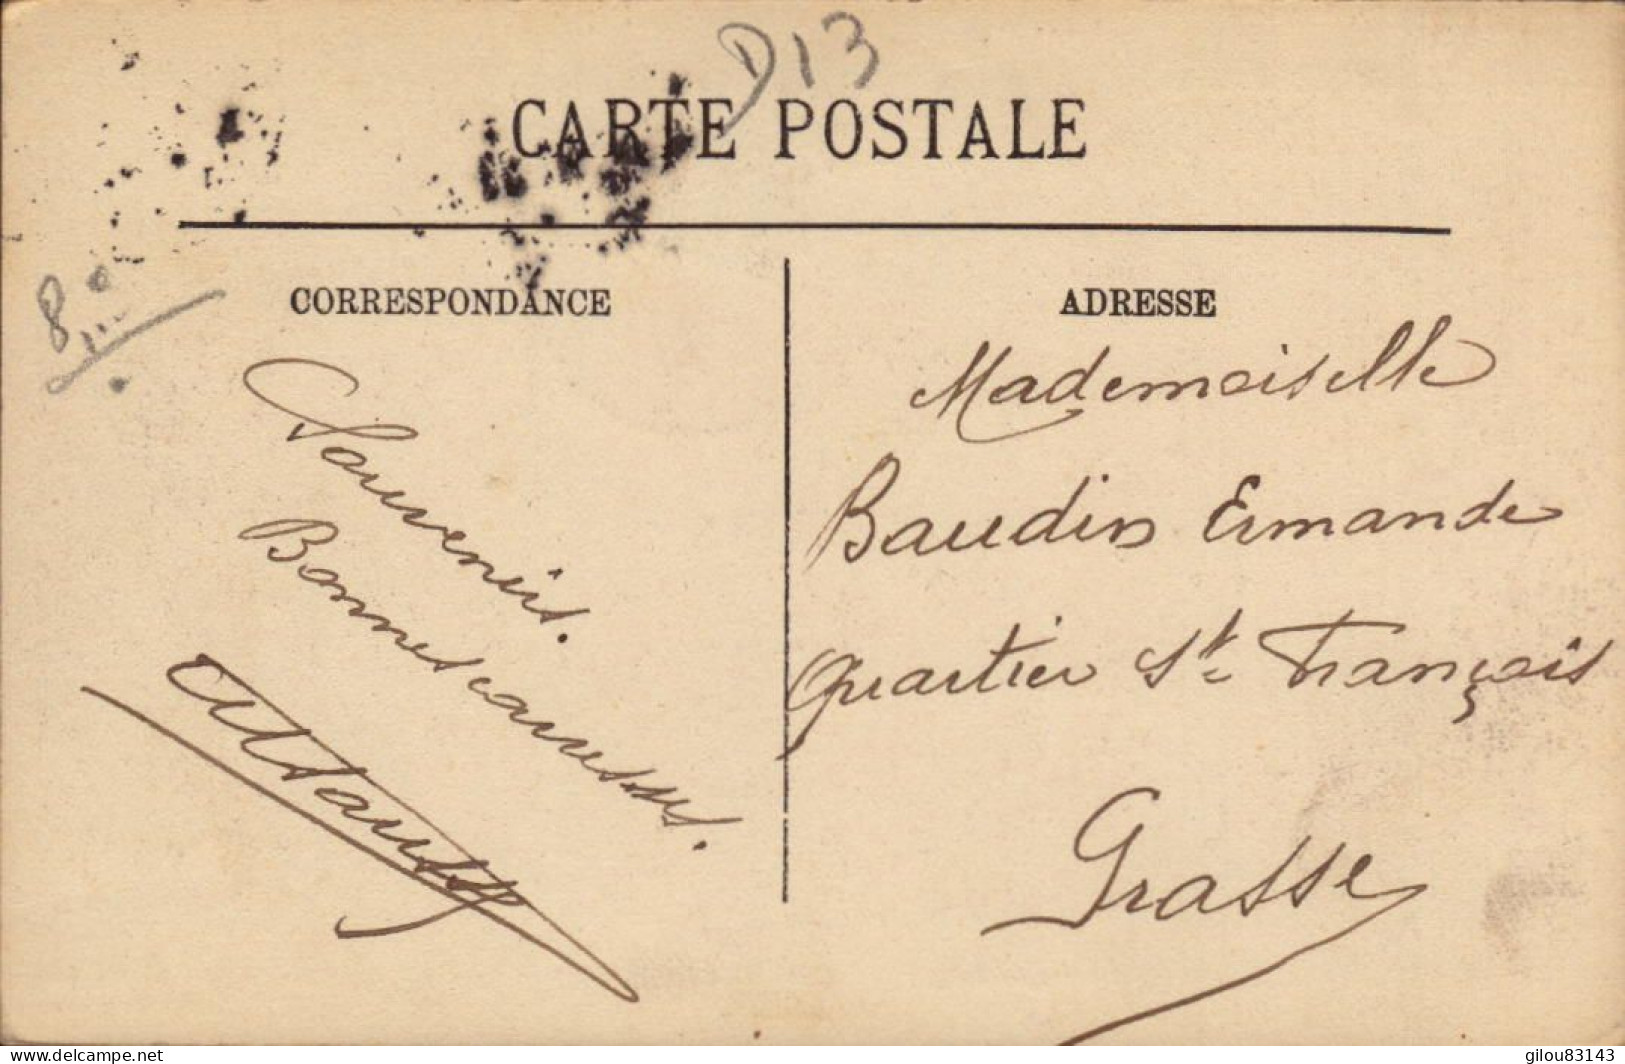 D13
CARTE POSTALE
CORRESPONDANCE
Souvenirs.
Bonnes caresses.
ADRESSE
Mademoiselle
Baudin Ermande
Quartier St. François
Grasse
www.delcampe.net
gilou83143